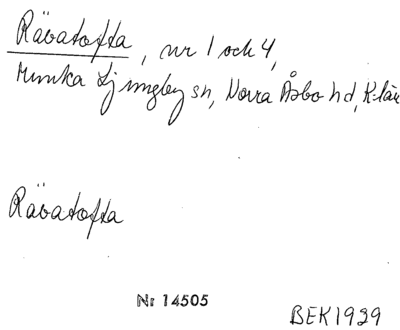 Rävatofta, nr 1 och 4,
Munka Ljungby sn, Norra Åsbo hd, K-län
Rävatofta
Nr 14505
BEK 1939